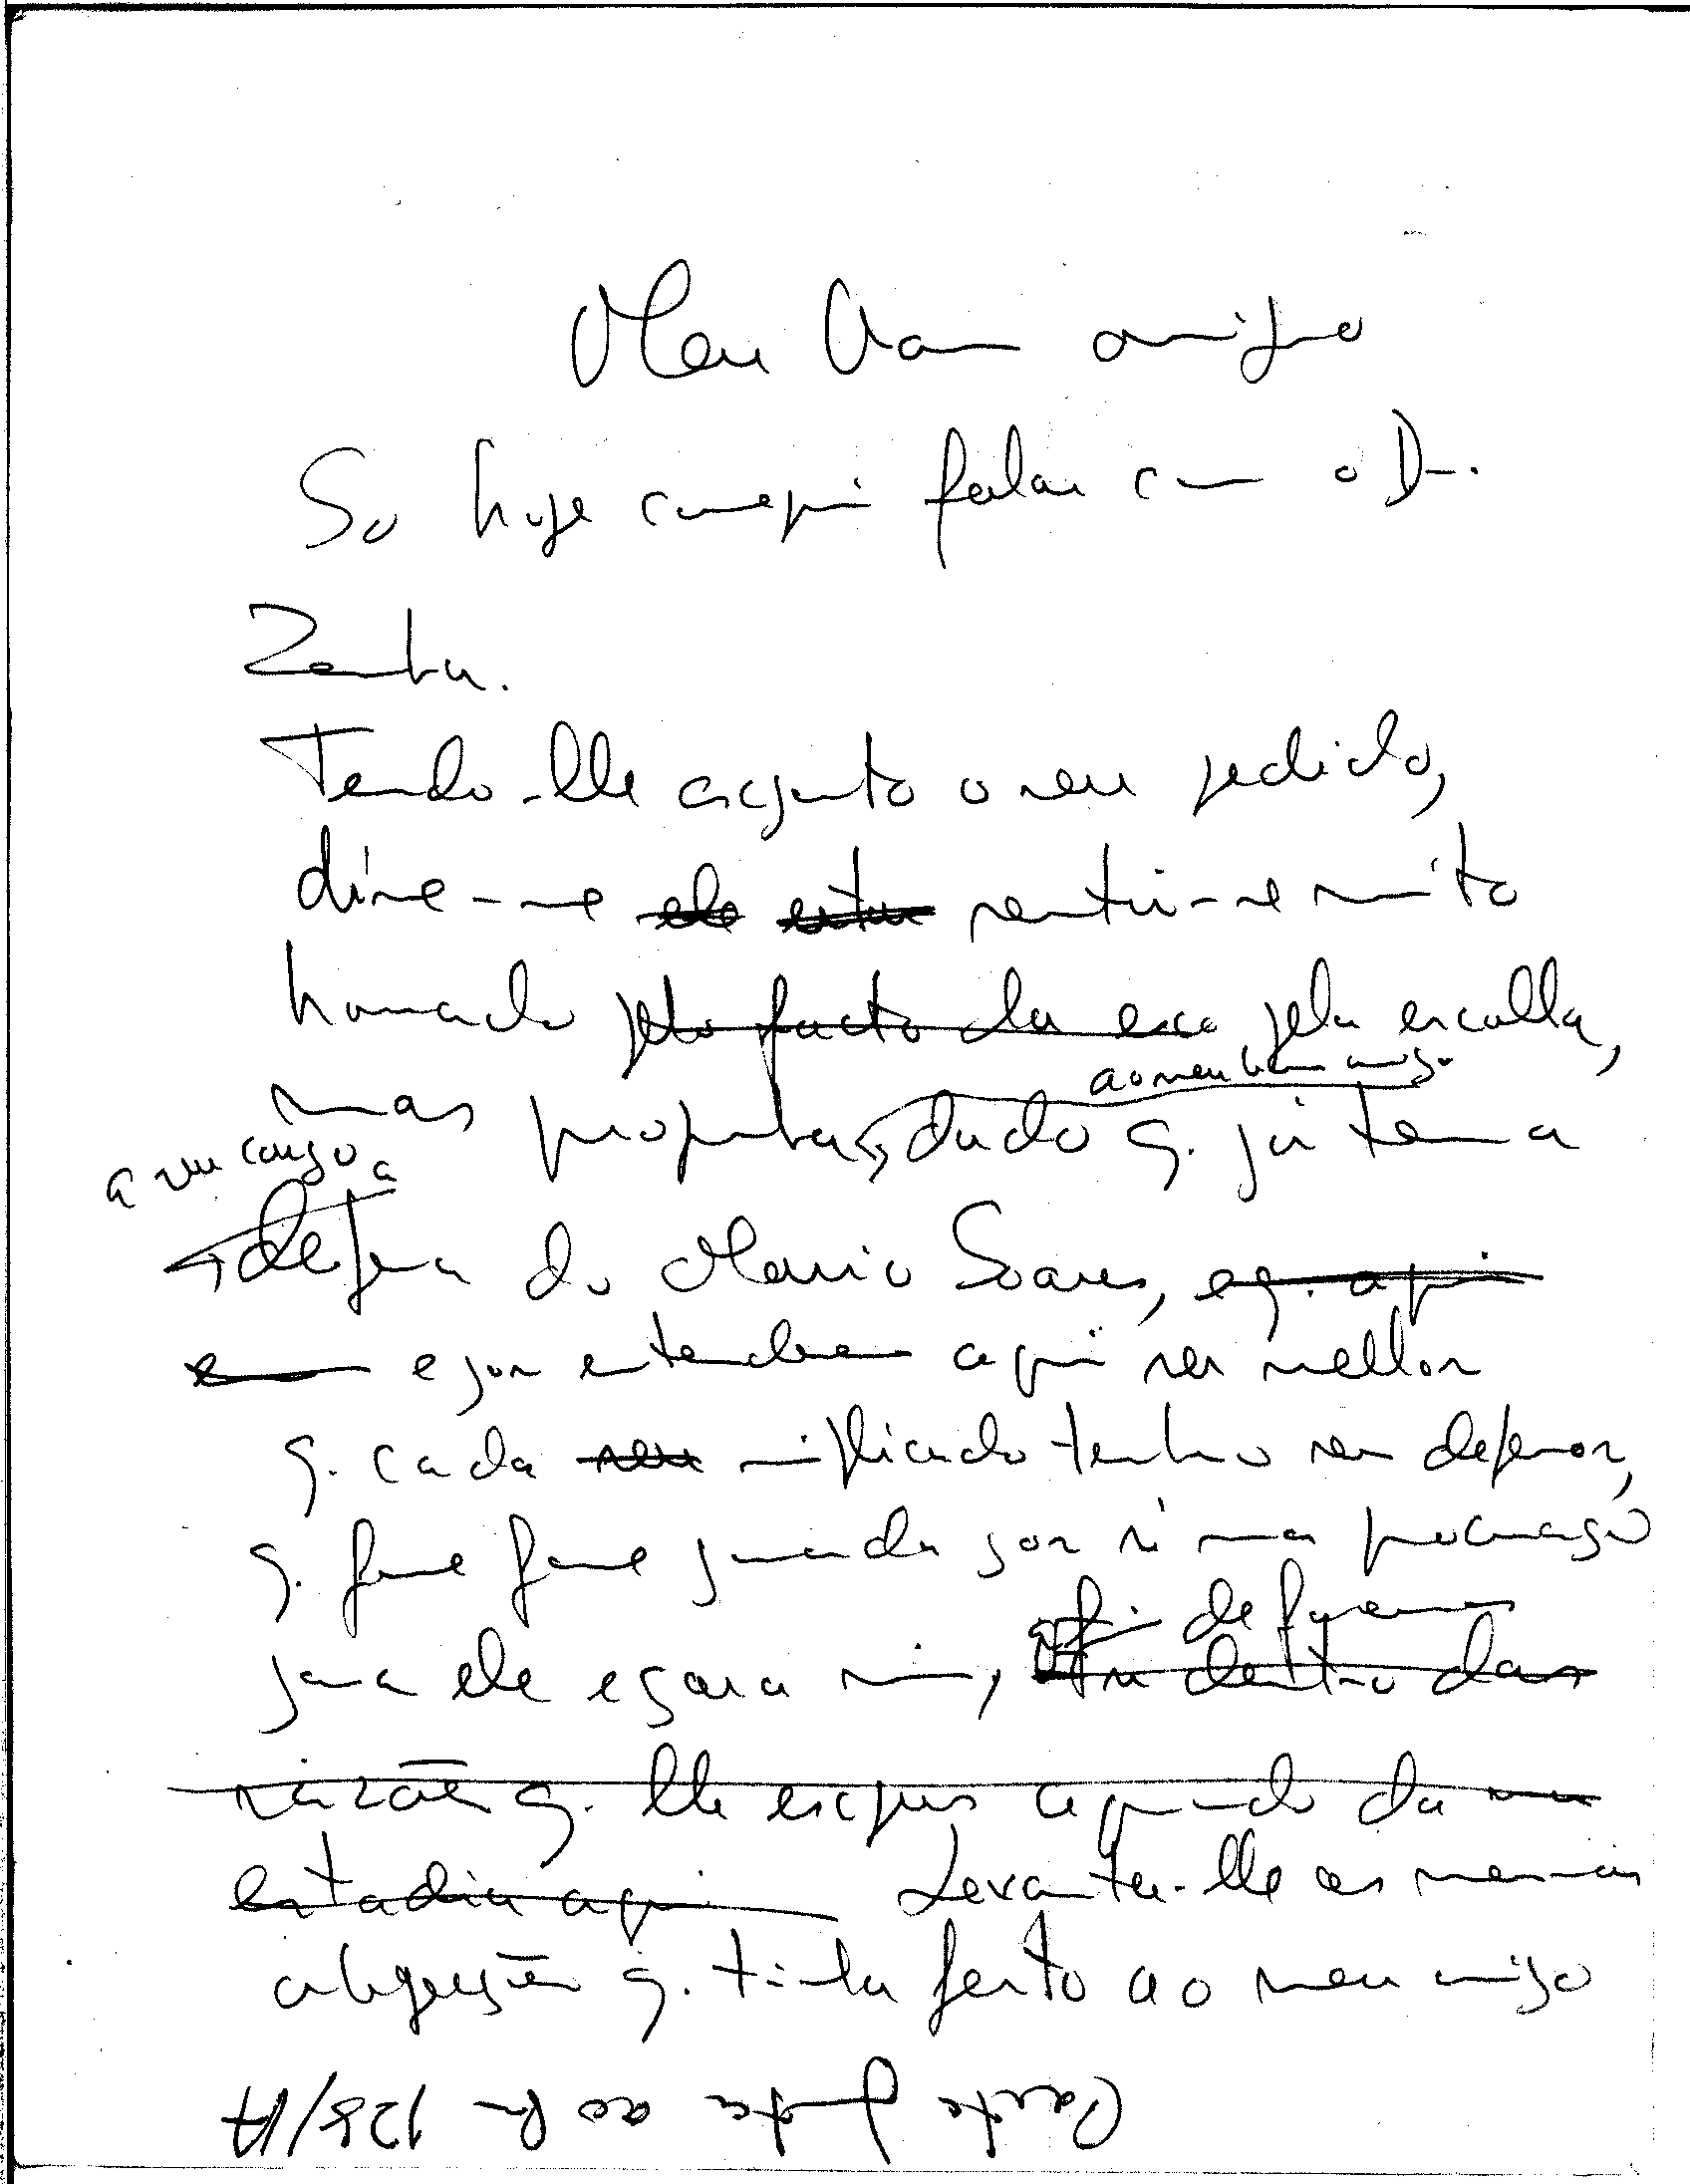 Meu bom amigo
Só hoje consegui falar com o Dr.
Zenha.
Tendo-lhe exposto o seu pedido,
disse-me ele estar sentir-se muito
honrado pelo facto da esco pela escolha,
ao meu bom amigo
mas propunha, dado q. já tem a
a seu cargo a
defesa do Mario Soares, e q. aqui
e por entenderem aqui ser melhor
q. cada seu implicado tenha seu defensor,
q. fosse passada por si uma procuração
para ele e para mim, dentro das
afim de fazermos
razões q. lhe expus aquando da sua
estadia aqui Levantei-lhe as mesmas
objecções q. tinha feito ao meu amigo
Carta junta ao Pr 125/